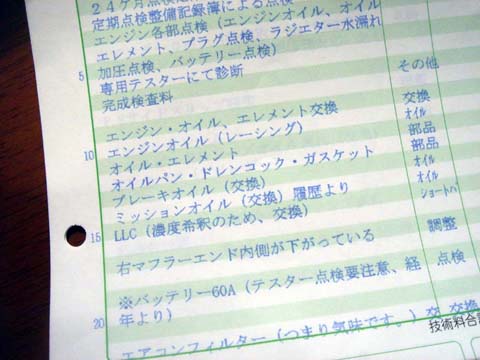 ２４ケ月点検
定期点検整備記録簿による点検
エンジン各部点検（エンジンオイル、オイル
エレメント、プラグ点検、ラジエター水漏れ
5 加圧点検、バッテリー点検）
専用テスターにて診断 その他
完成検査料
エンジン・オイル、エレメント交換 交換
10 エンジンオイル（レーシング） オイル
オイル・エレメント 部品
オイルパン・ドレンコック・ガスケット 部品
ブレーキオイル（交換） オイル
ミッションオイル（交換）履歴より オイル
15 LLC（濃度希釈のため、交換） ショートパ
右マフラーエンド内側が下がっている 調整
※バッテリー60A（テスター点検要注意、経 点検
20 年より）
エアコンフィルター（つまり気味です。）交 交換
技術料合計